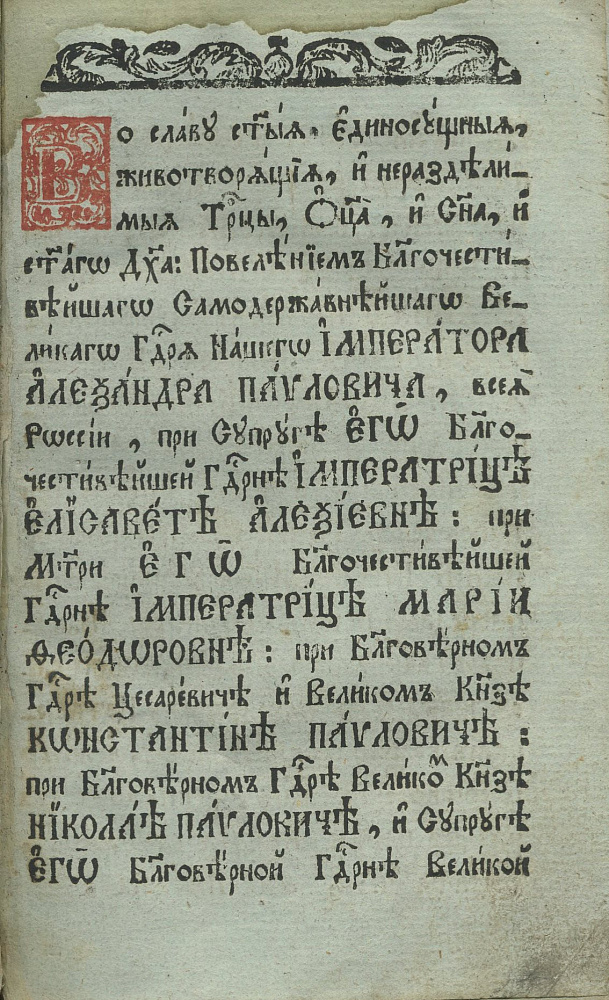 Во сла́ву ст҃ы́ѧ, є҆диносꙋ́щныѧ,
животворѧ́щїѧ, и҆ нераздѣли́-
мыѧ Трⷪ҇цы, Ѻ҆ц҃а̀, и҆ Сн҃а, и҆
ст҃а́гѡ Дх҃а: Повелѣ́нїемъ Бл҃гочести́-
вѣйшагѡ Самодержа́внѣйшагѡ Ве-
ли́кагѡ Гдⷭ҇рѧ На́шегѡ І҆МПЕРА́ТОРА
А҆ЛЕѮА́НДРА ПА́ѴЛОВИЧА, всеѧ̀
Рѡссі́и, при Сꙋпрꙋ́гѣ Є҆ГѠ̀ Бл҃го-
чести́вѣйшей Гдⷭ҇рнѣ І҆МПЕРАТРІ́ЦѢ
Є҆ЛІСАВЕ́ТѢ А҆ЛЕѮІ́ЕВНѢ: при
М҃три Є҆ГѠ̀ Бл҃гочести́вѣйшей
Гдⷭ҇рнѣ І҆МПЕРАТРІ́ЦѢ МАРІ́И
ѲЕО́ДѠРОВНѢ: при Бл҃говѣ́рномъ
Гдⷭ҇рѣ Цесаре́вичѣ и҆ Вели́комъ Кн҃зѣ
КѠНСТАНТІ́НѢ ПА́ѴЛОВИЧѢ:
при Бл҃говѣ́рномъ Гдⷭ҇рѣ Вели́коⷨ Кн҃зѣ
НІКОЛА́Ѣ ПА́ѴЛОВИЧѢ, и҆ Сꙋпрꙋ́гѣ
Є҆ГѠ̀ Бл҃говѣ́рной Гдⷭ҇рнѣ Вели́кой